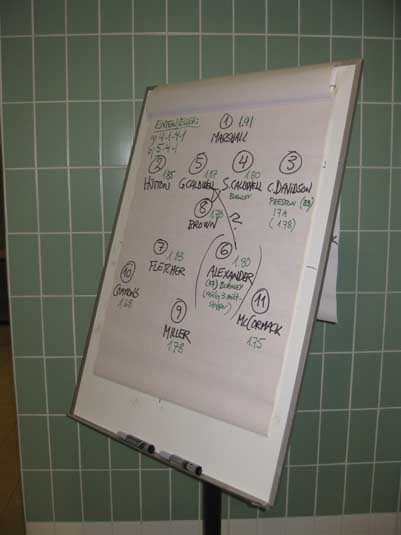 ① 1.91
MARSHALL
a) 4-1-4-1
b) 5-4-1
② 1.85
HUTTON
⑤ 1.87
G. CALDWELL
④ 1.80
S. CALDWELL
BURNLEY
③
C. DAVIDSON
PRESTON (33)
17A
(1.78)
⑧ 1.78
BROWN
?
⑦ 1.83
FLETCHER
⑥
1.80
ALEXANDER
BURNLEY
⑩
COMMONS
1.68
⑨
MILLER
1.78
⑪
McCORMACK
1.75